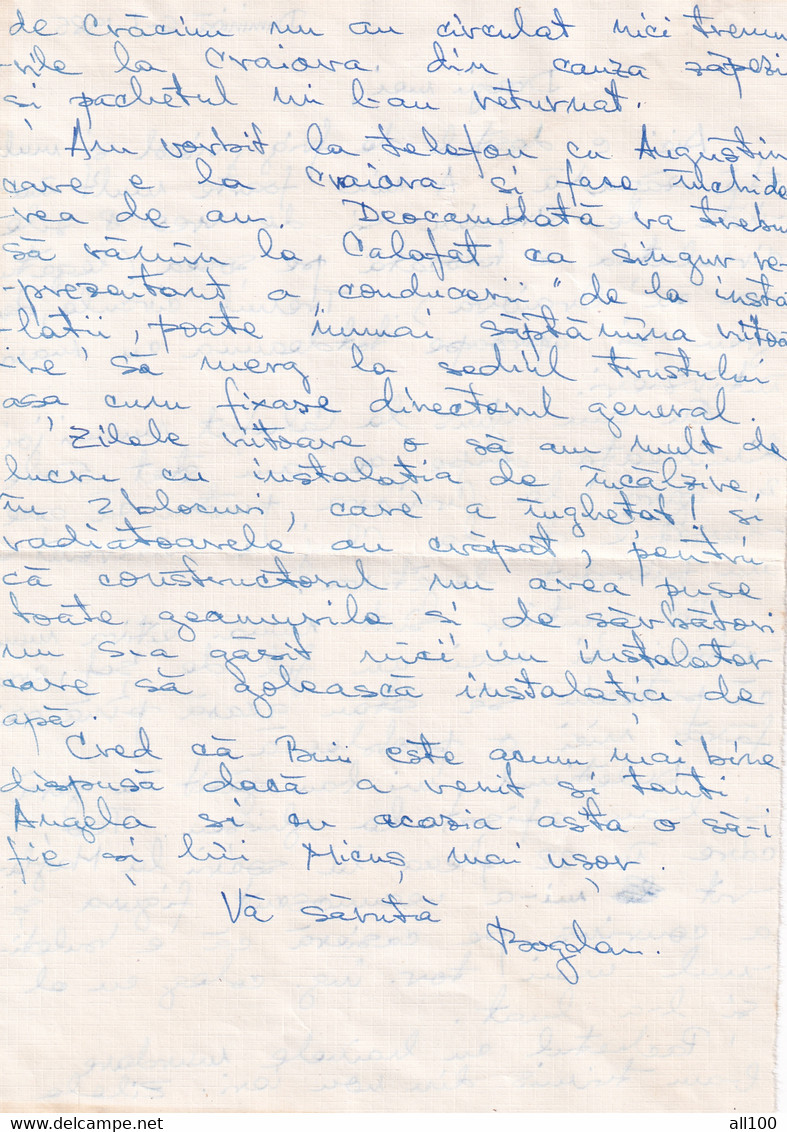 de Crăciun nu au circulat nici trenu
-rile la Craiova din cauza zăpezi
și pachetul mi l-au returnat.
Am vorbit la telefon cu Augustin
care e la Craiova și face închide
-rea de an. Deocamdată va trebu
să rămîn la Calafat ca singur re-
-prezentant a conducerii" de la insta
-lații, poate numai săptămîna viitoa
-re, să merg la sediul trustului
așa cum fixase directorul general.
Zilele viitoare o să am mult de
lucru cu instalația de încălzire,
în 2 blocuri, care a înghețat! și
radiatoarele au crăpat, pentru
că constructorul nu avea puse
toate geamurile și de sărbători
nu s-a găsit nici un instalator
care să golească instalația de
apă.
Cred că Buni este acum mai bine
dispusă dacă a venit și tanti
Angela și cu ocazia asta o să-i
fie și lui Micuș mai ușor.
Vă sărută
Bogdan.
all100